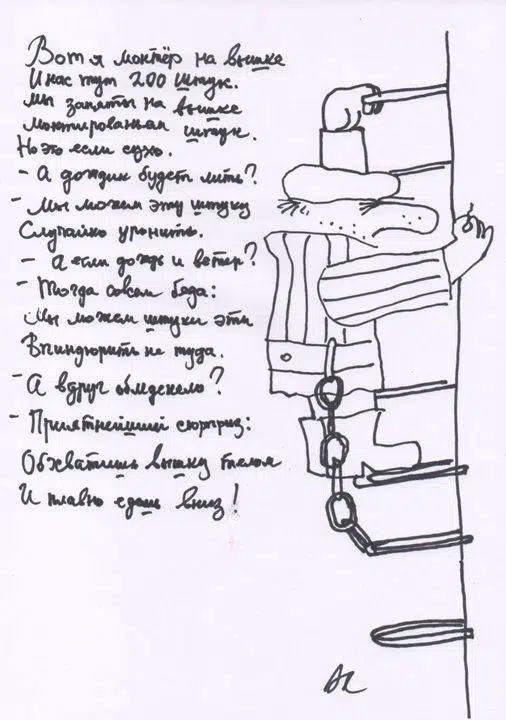 Вот я монтёр на вышке
И нас тут 200 штук.
Мы заняты на вышке
Монтированьем штук.
Но это если сухо.
- А дождик будет лить?
- Мы можем эту штуку
Случайно уронить.
- А если дождь и ветер?
- Тогда совсем беда:
Мы можем штуки эти
Впиндюрить не туда.
- А вдруг обледенело?
- Приятнейший сюрприз:
Обхватишь вышку телом
И плавно едешь вниз!